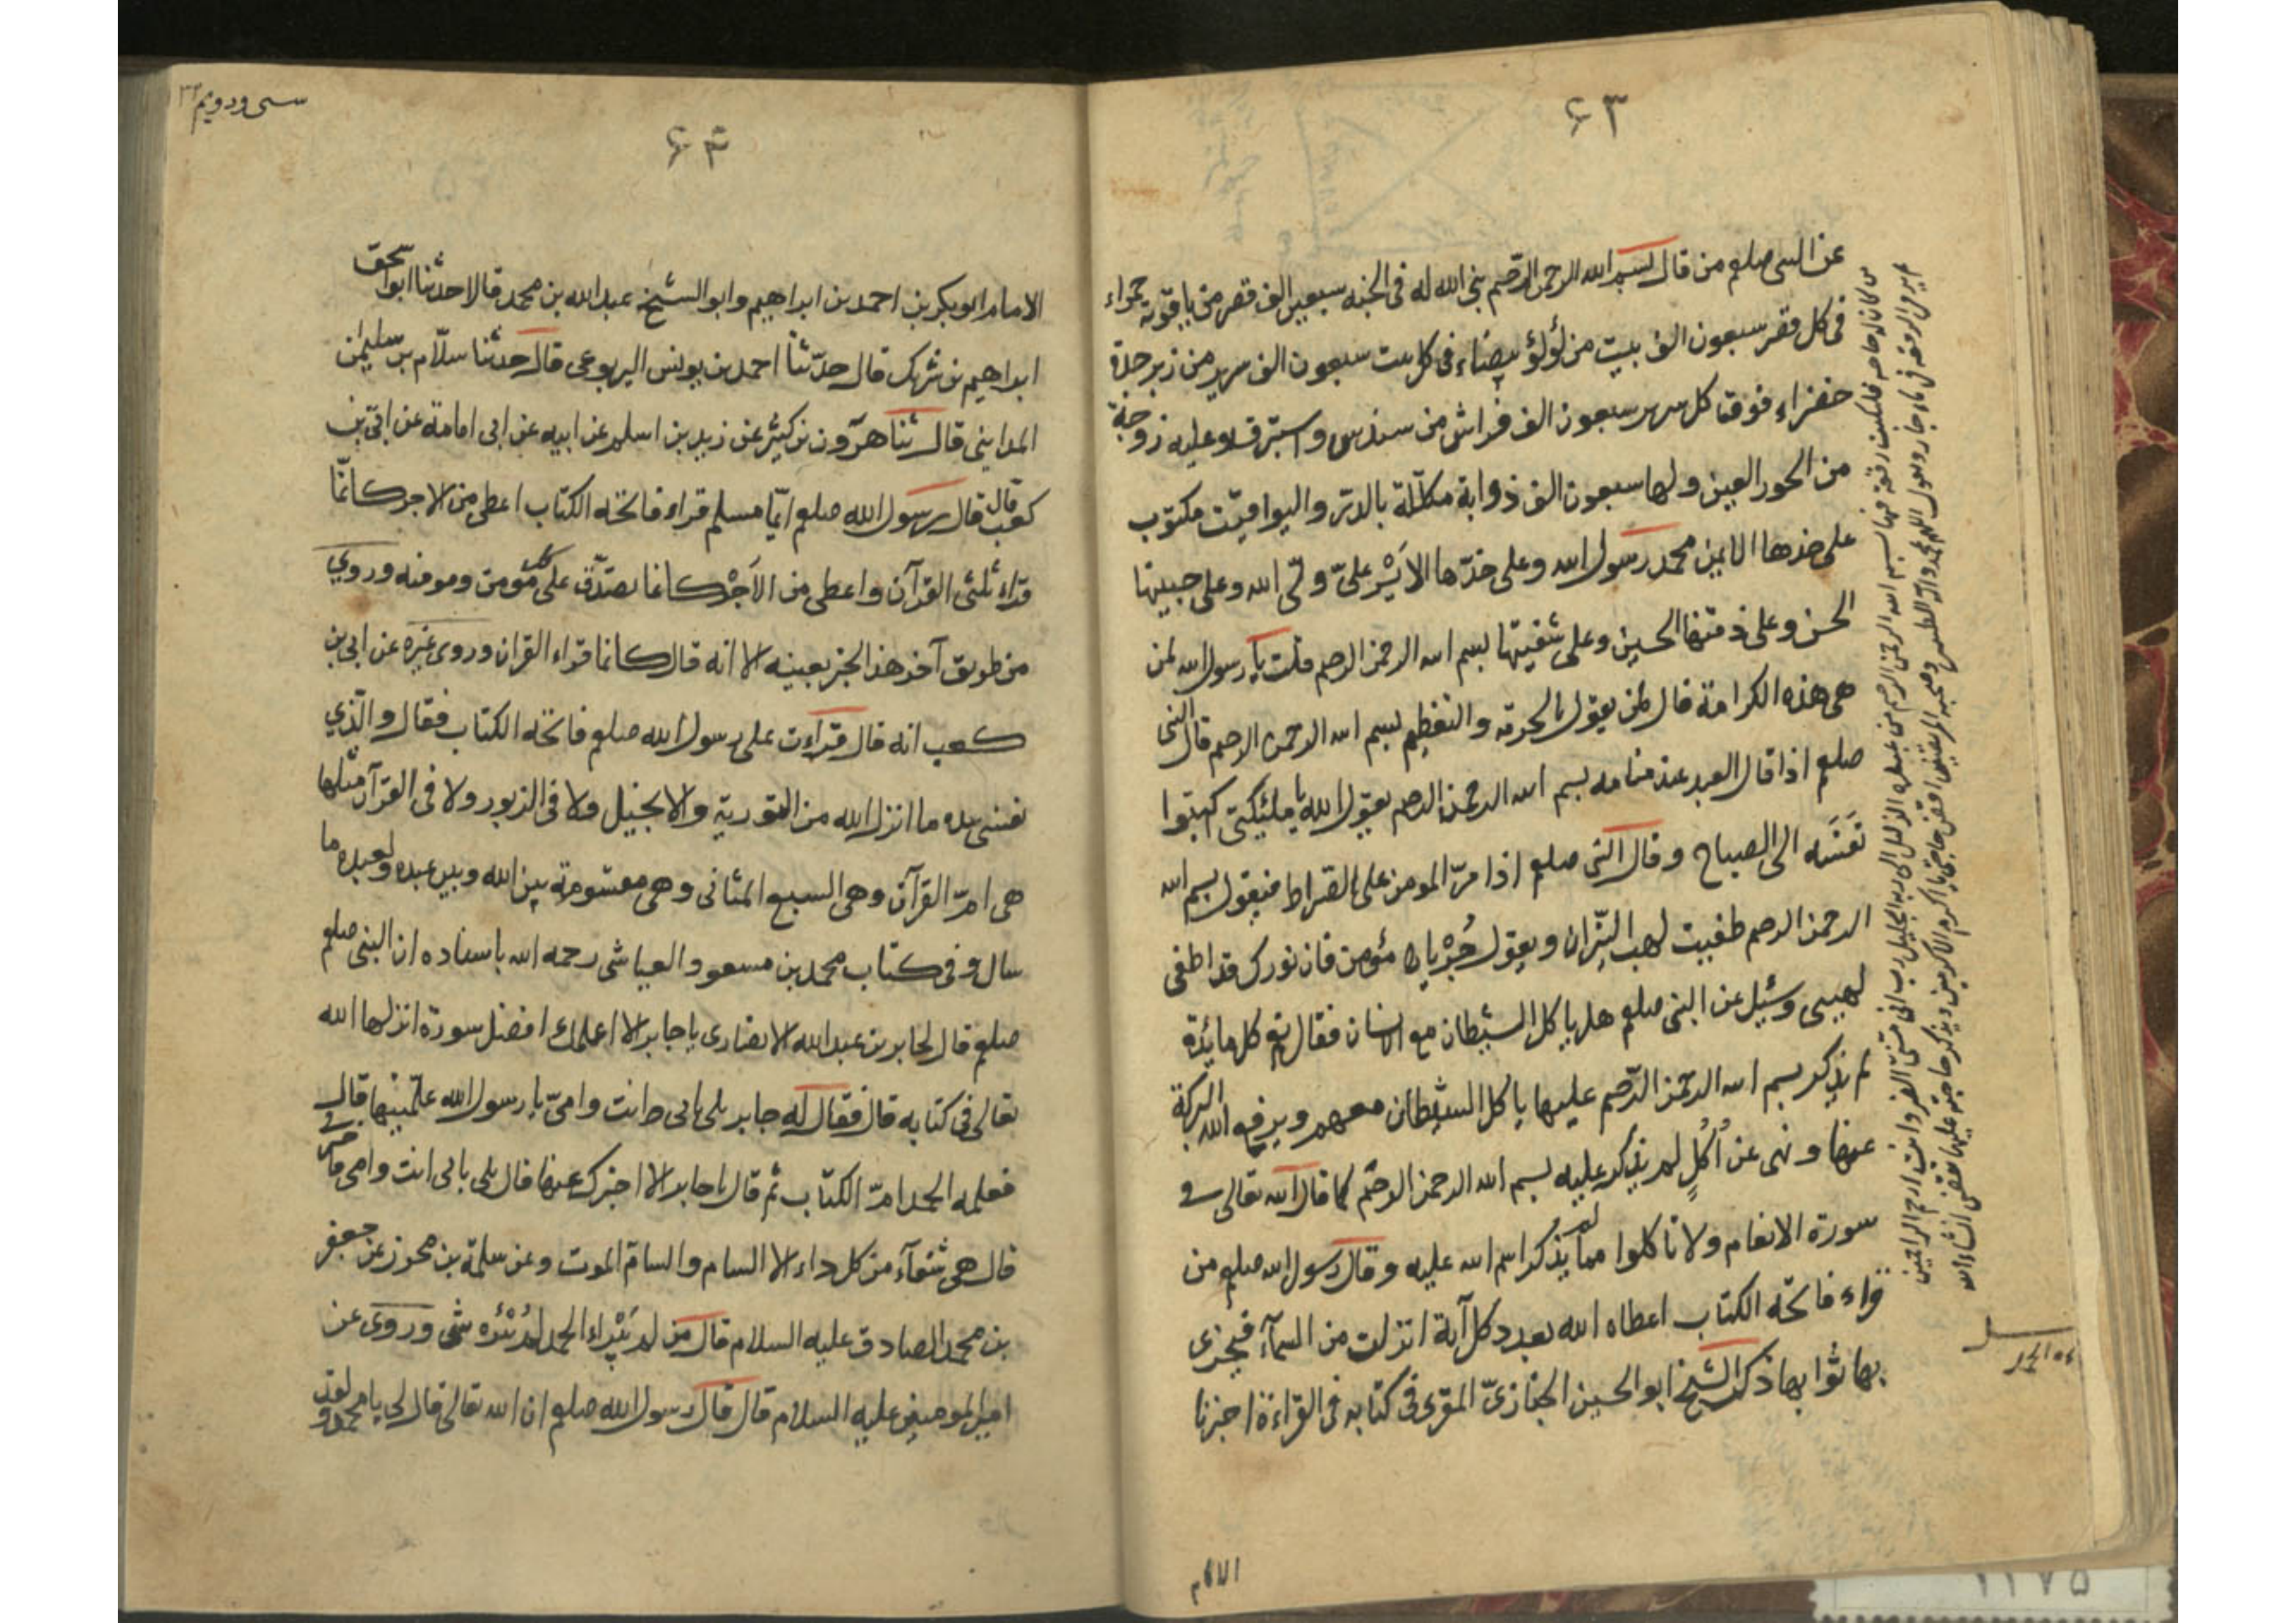 ۶۳
عن النبى صلعم من قال بسم الله الرحمن الرحيم بنى الله له فى الجنه سبعين الف قصر من ياقوتة حمراء
فى كل قصر سبعون الف بيت من لؤلؤ بيضاء فى كل بيت سبعون الف سرير من زبرجدة
خضراء فوق كل سرير سبعون الف فراش من سندس واستبرق وعليه زوجة
من الحور العين ولها سبعون الف ذوابة مكللة بالدر واليواقيت مكتوب
على خدها الايمن محمد رسول الله وعلى خدها الايسر على ولى الله وعلى جبينها
الحسن وعلى ذقنها الحسين وعلى شفتيها بسم الله الرحمن الرحيم قلت يا رسول الله لمن
هى هذه الكرامة قال لمن يقول بالحرمة والتعظيم بسم الله الرحمن الرحيم قال النبى
صلعم اذا قال العبد عند منامه بسم الله الرحمن الرحيم يقول الله يا ملئيكتى كتبوا
نفسه الى الصباح وقال النبى صلعم اذا مر المومن على الصراط فيقول بسم الله
الرحمن الرحيم طفيت لهب النيران ويقول جز يا مؤمن فان نورك قد اطفى
لهيبى وسئيل عن النبى صلعم هل ياكل الشيطان مع الانسان فقال نعم كل مائدة
لم يذكر بسم الله الرحمن الرحيم عليها ياكل الشيطان معهم ويرفع الله البركة
عنها ونهى عن اُكُلٍ لم يذكر عليه بسم الله الرحمن الرحيم كما قال الله تعالى فى
سورة الانعام ولا تاكلوا مما لم يذكر اسم الله عليه وقال رسول الله صلعم من
قراء فاتحة الكتاب اعطاه الله بعدد كل آية انزلت من السمآء فيجزى
بها ثوابها ذكر الشيخ ابو الحسين الخبازى المقرى فى كتابه فى القراءة اخبرنا
الامام
من كان له حاجه فليكتب رقعة فيها بسم الله الرحمن الرحيم من عبده الذليل الى ربه الجليل رب انى مسنى الضر وانت ارحم الراحمين
سى ودويم ۳۲
۶۴
الامام ابو بكر بن احمد بن ابراهيم وابو الشيخ عبد الله بن محمد قالا حدثنا ابو اسحق
ابراهيم بن شريك قال حدثنا احمد بن يونس اليربوعى قال حدثنا سلام بن سليمن
المداينى قال ثنا هرون بن كثير عن زيد بن اسلم عن ابيه عن ابى امامة عن ابى بن
كعب قال قال رسول الله صلعم ايما مسلم قراء فاتحه الكتاب اعطى من الاجر كانما
قراء ثلثى القرآن واعطى من الاَجْر كانما تصدق على كل مؤمن ومومنه وروى
من طريق آخر هذا الخبر بعينه الا انه قال كانما قراء القران وروى غيره عن ابى بن
كعب انه قال قراءت على رسول الله صلعم فاتحة الكتاب فقال والذي
نفسى بيده ما انزل الله من التورية والانجيل ولا فى الزبور ولا فى القرآن مثلها
هى ام القرآن وهى السبع المثانى وهى مقسومة بين الله وبين عبده ولعبده ما
سال وفى كتاب محمد بن مسعود العياشى رحمه الله باسناده ان النبى صلعم
صلعم قال لجابر بن عبد الله الانصارى يا جابر الا اعلمك افضل سورة انزلها الله
تعالى فى كتابه قال فقال له جابر بلى بابى انت وامى يا رسول الله علمنيها قال
فعلمه الحمد ام الكتاب ثم قال يا جابر الا اخبرك عنها قال بلى بابى انت وامى فاخبرنى
قال هى شفآء من كل داء الا السام والسام الموت وعن سلمة بن محرز عن جعفر
بن محمد الصادق عليه السلام قال من لم يَبْراء الحمد لم يُبْرُئه شى وروى عن
امير المومنين عليه السلام قال قال رسول الله صلعم ان الله تعالى قال لى يا محمد ولقد